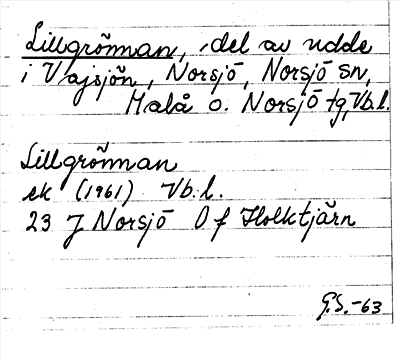 Lillgrönnan, del av udde
i Vajsjön, Norsjö, Norsjö sn,
Malå o. Norsjö tg, Vb.l.
Lillgrönnan
ek (1961) Vb.l.
23 J Norsjö 0 f Holktjärn
G.S.-63